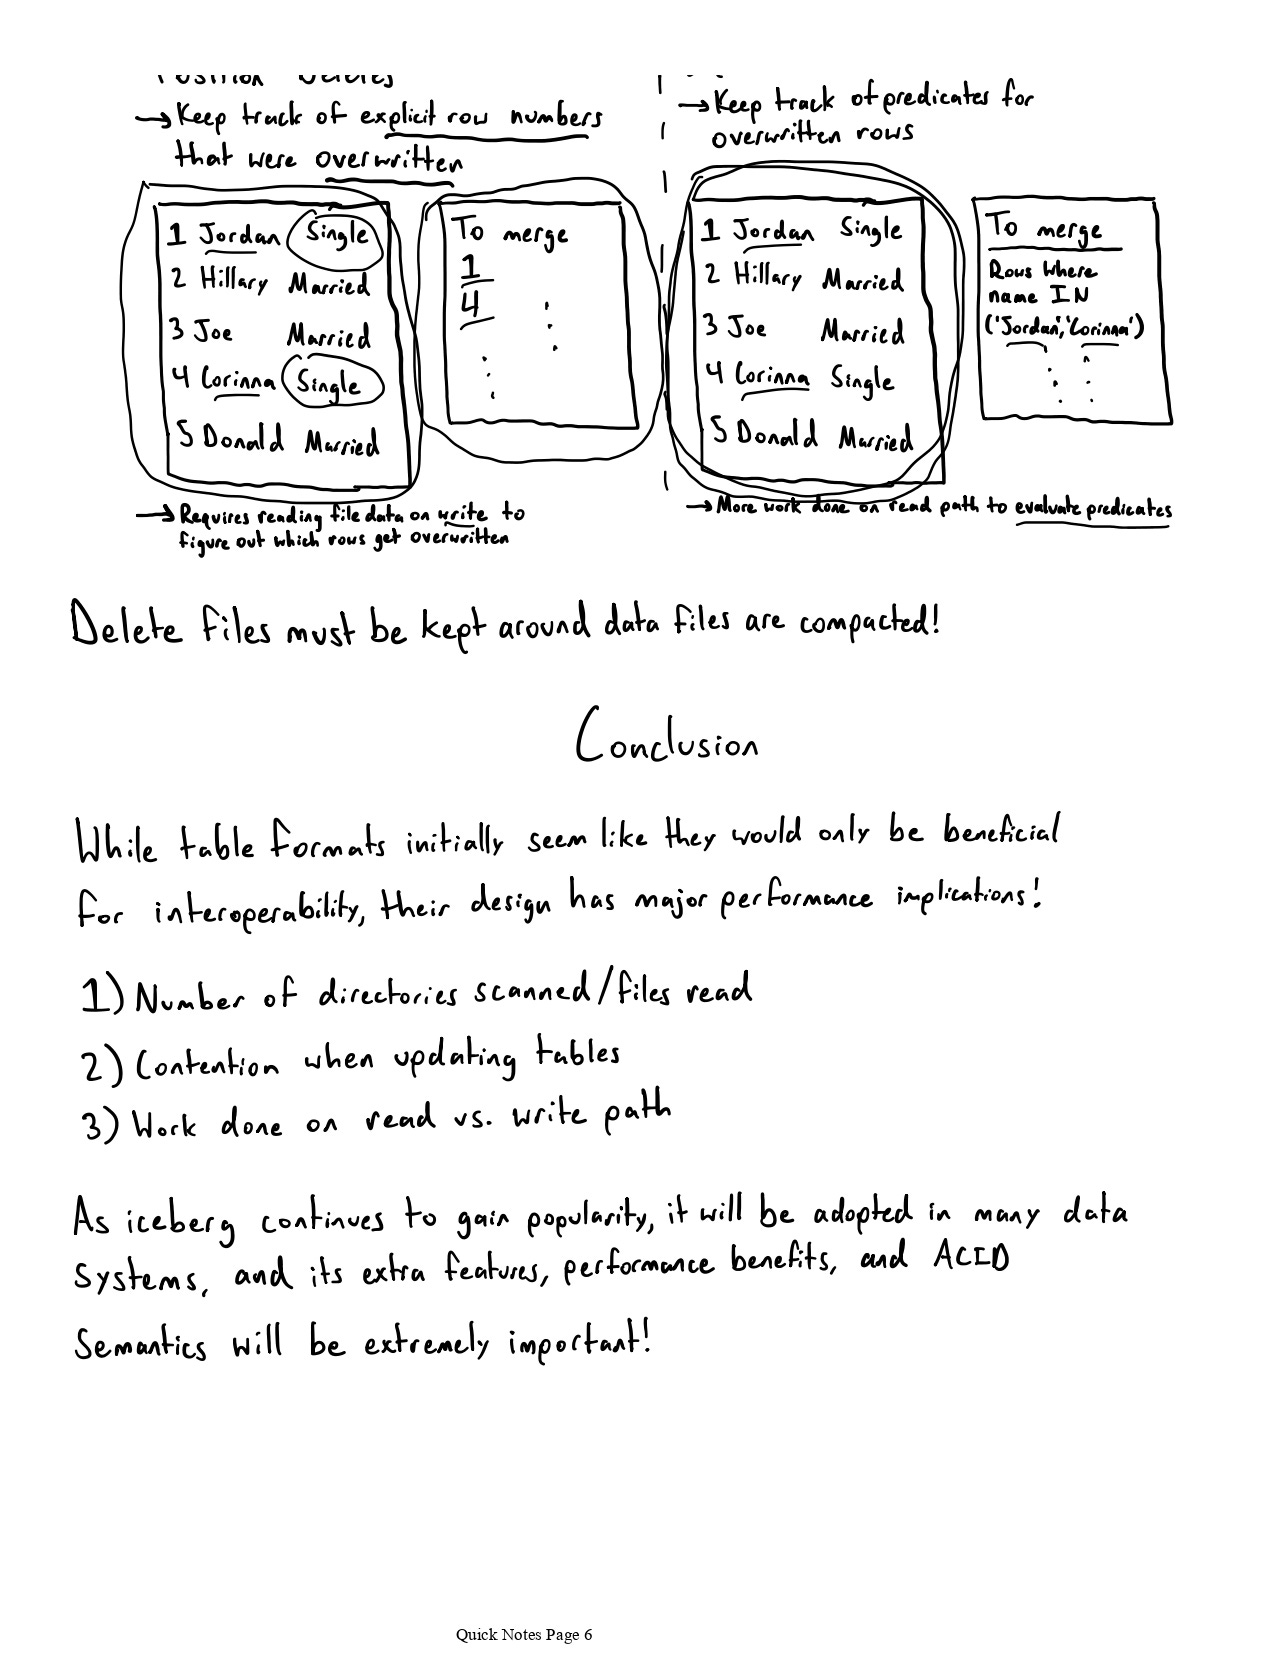 Position Deletes
→ Keep track of explicit row numbers
that were overwritten
1 Jordan Single
2 Hillary Married
3 Joe Married
4 Corinna Single
5 Donald Married
To merge
1
4
→ Requires reading file data on write to
figure out which rows get overwritten
→ Keep track of predicates for
overwritten rows
1 Jordan Single
2 Hillary Married
3 Joe Married
4 Corinna Single
5 Donald Married
To merge
Rows where
name IN
('Jordan','Corinna')
→ More work done on read path to evaluate predicates
Delete files must be kept around data files are compacted!
Conclusion
While table formats initially seem like they would only be beneficial
for interoperability, their design has major performance implications!
1) Number of directories scanned/files read
2) Contention when updating tables
3) Work done on read vs. write path
As iceberg continues to gain popularity, it will be adopted in many data
systems, and its extra features, performance benefits, and ACID
semantics will be extremely important!
Quick Notes Page 6